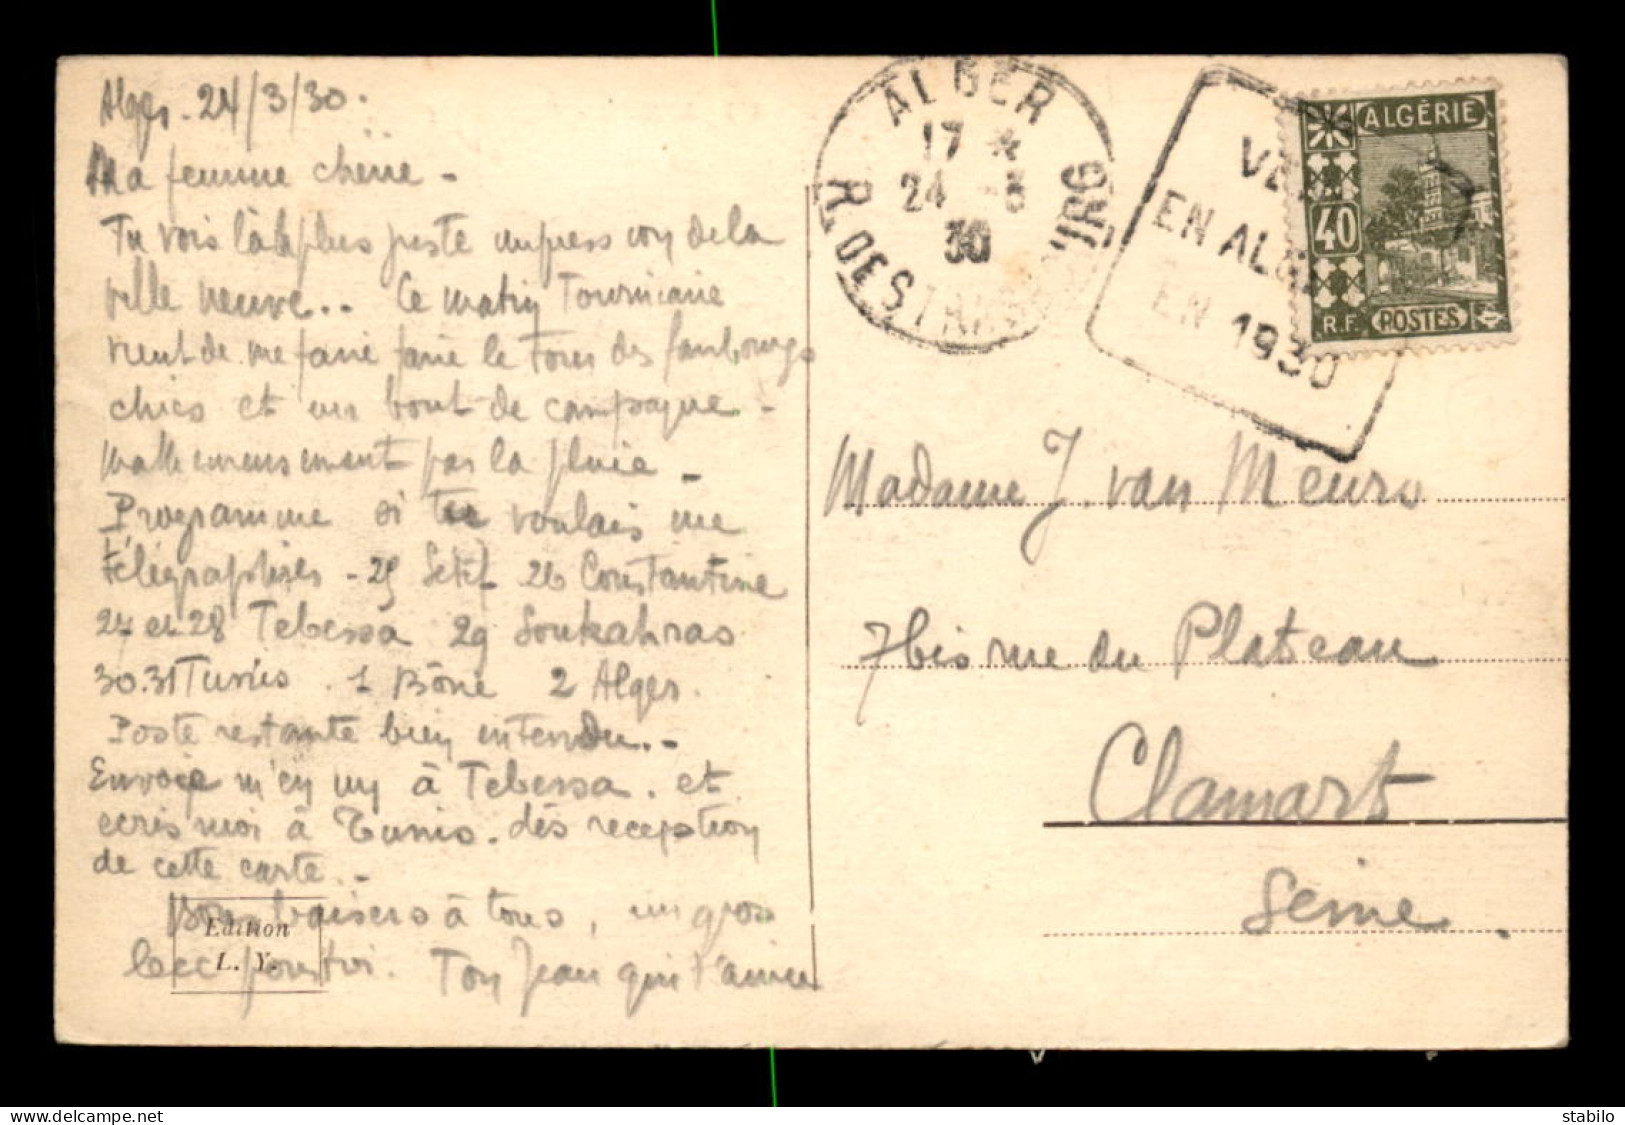 Alger. 24/3/30.
Ma femme chérie -
Tu vois là la plus juste impression de la
ville neuve... Ce matin Tourniaire
vient de me faire faire le tour des faubourgs
chics et un bout de campagne -
Malheureusement par la pluie -
Programme si tu voulais me
télégraphier - 25 Setif 26 Constantine
27 et 28 Tebessa 29 Soukahras
30.31 Tunis. 1 Bône 2 Alger.
Poste restante bien entendu.-
Envoie m'en un à Tebessa. et
ecris moi à Tunis. dès reception
de cette carte.-
Bons baisers à tous, un gros
bec pour toi. Ton Jean qui t'aime
Edition
L. Y.
ALGER
17 *
24 -3
30
R. DE STRASBOURG
EN ALG
EN 1930
ALGÉRIE
40
R.F. POSTES
Madame J. van Meurs
7bis rue du Plateau
Clamart
Seine.
stabilo